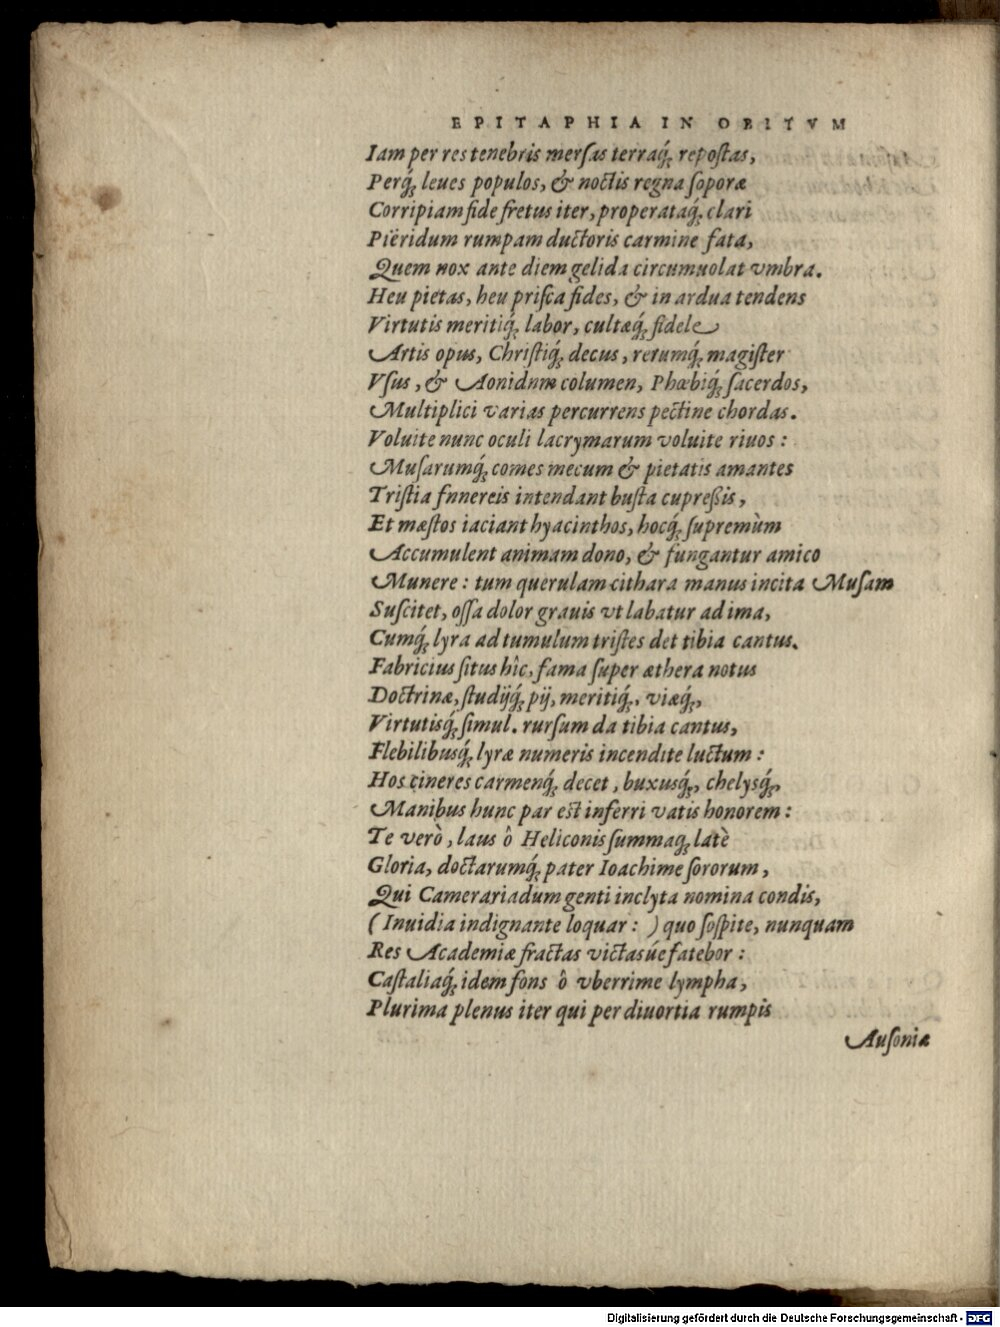 EPITAPHIA IN OBITVM
Iam per res tenebris mersas terraq́; repostas,
Perq́; leues populos, & noctis regna soporæ
Corripiam fide fretus iter, properataq́; clari
Piëridum rumpam ductoris carmine fata,
Quem nox ante diem gelida circumuolat vmbra.
Heu pietas, heu prisca fides, & in ardua tendens
Virtutis meritiq́; labor, cultæq́; fidele
Artis opus, Christiq́; decus, rerumq́; magister
Vsus, & Aonidnm columen, Phœbiq́; sacerdos,
Multiplici varias percurrens pectine chordas.
Voluite nunc oculi lacrymarum voluite riuos:
Musarumq́; comes mecum & pietatis amantes
Tristia fnnereis intendant busta cupreßis,
Et mæstos iaciant hyacinthos, hocq́; supremùm
Accumulent animam dono, & fungantur amico
Munere: tum querulam cithara manus incita Musam
Suscitet, ossa dolor grauis vt labatur ad ima,
Cumq́; lyra ad tumulum tristes det tibia cantus.
Fabricius situs hîc, fama super æthera notus
Doctrinæ, studijq́; pij, meritiq́;, viæq́;,
Virtutisq́; simul. rursum da tibia cantus,
Flebilibusq́; lyræ numeris incendite luctum:
Hos cineres carmenq́; decet, buxusq́;, chelysq́;,
Manibus hunc par est inferri vatis honorem:
Te verò, laus ô Heliconis summaq; latè
Gloria, doctarumq́; pater Ioachime sororum,
Qui Camerariadum genti inclyta nomina condis,
(Inuidia indignante loquar: ) quo sospite, nunquam
Res Academiæ fractas victasúe fatebor:
Castaliaq́; idem fons ô vberrime lympha,
Plurima plenus iter qui per diuortia rumpis
Ausoniæ
Digitalisierung gefördert durch die Deutsche Forschungsgemeinschaft - DFG